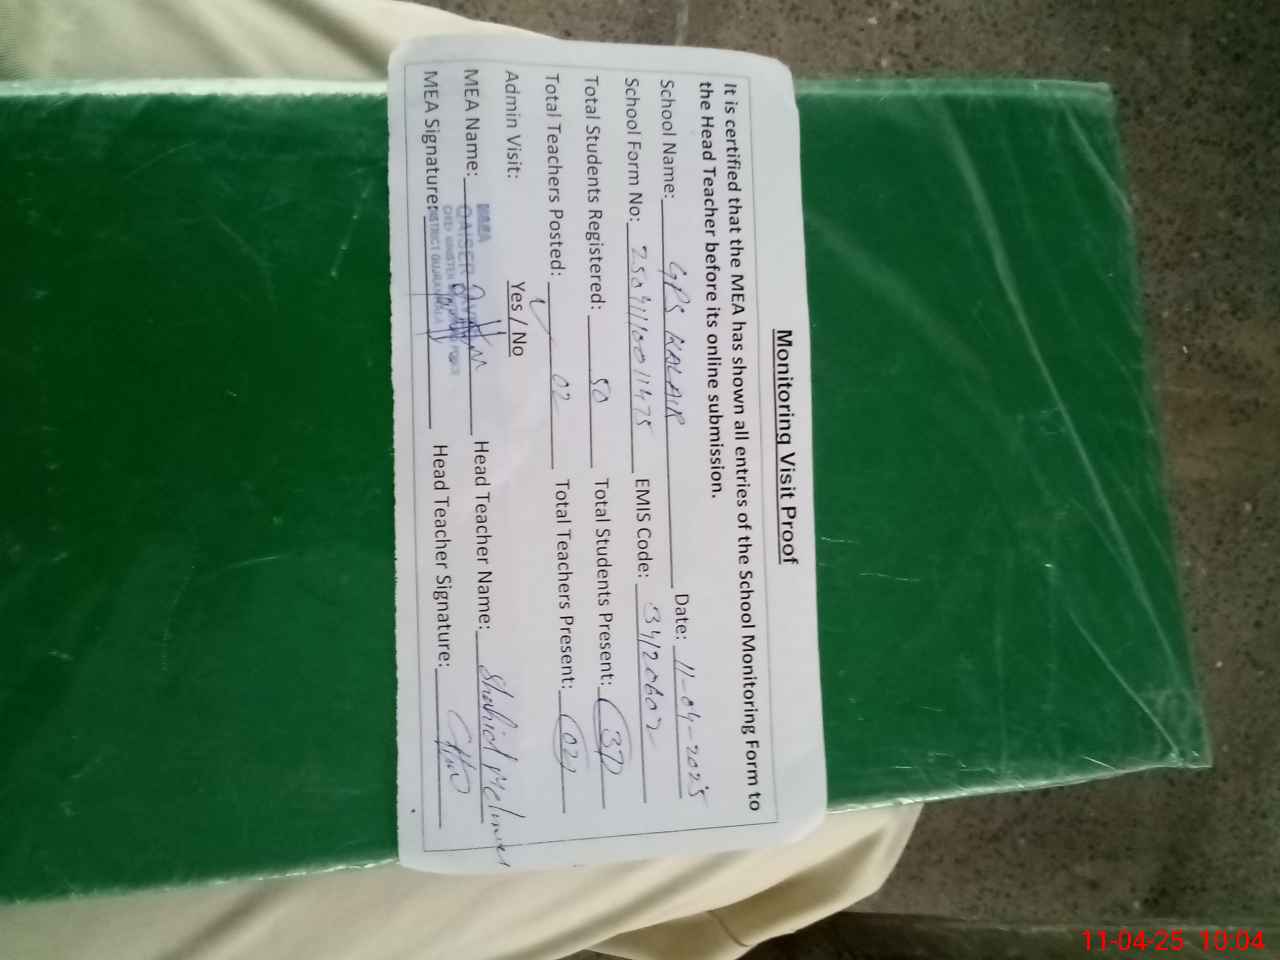 Monitoring Visit Proof
It is certified that the MEA has shown all entries of the School Monitoring Form to
the Head Teacher before its online submission.
School Name: GPS KALAIR Date: 11-04-2025
School Form No: 2504110011475 EMIS Code: 34120602
Total Students Registered: 50 Total Students Present: 37
Total Teachers Posted: 02 Total Teachers Present: 02
Admin Visit: Yes / No
MEA Name: QAISER Head Teacher Name: Shahid
MEA Signature: Head Teacher Signature:
DISTRICT
11-04-25 10:04